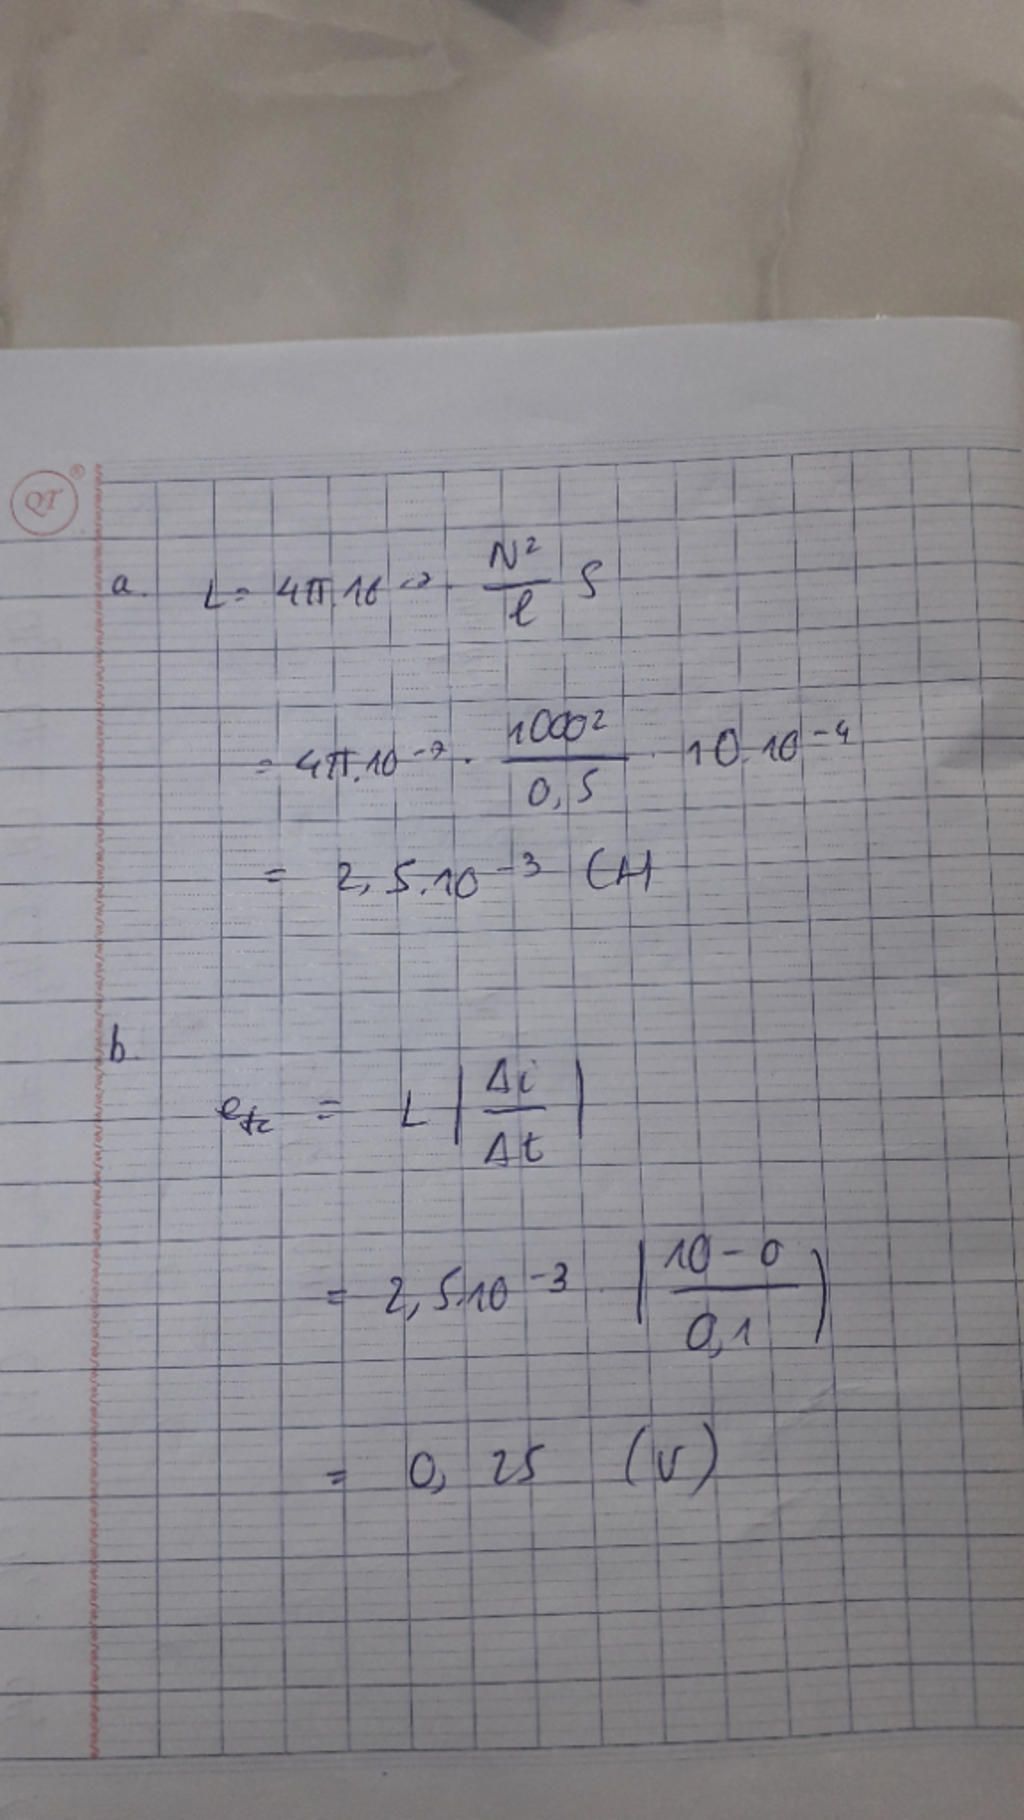 QT ®
a. L = 4π.10⁻⁷ . N²/l S
= 4π.10⁻⁷ . 1000²/0,5 . 10.10⁻⁴
= 2,5.10⁻³ (H)
b.
e_tc = L |Δi/Δt|
= 2,5.10⁻³ . |10-0/0,1|
= 0,25 (V)